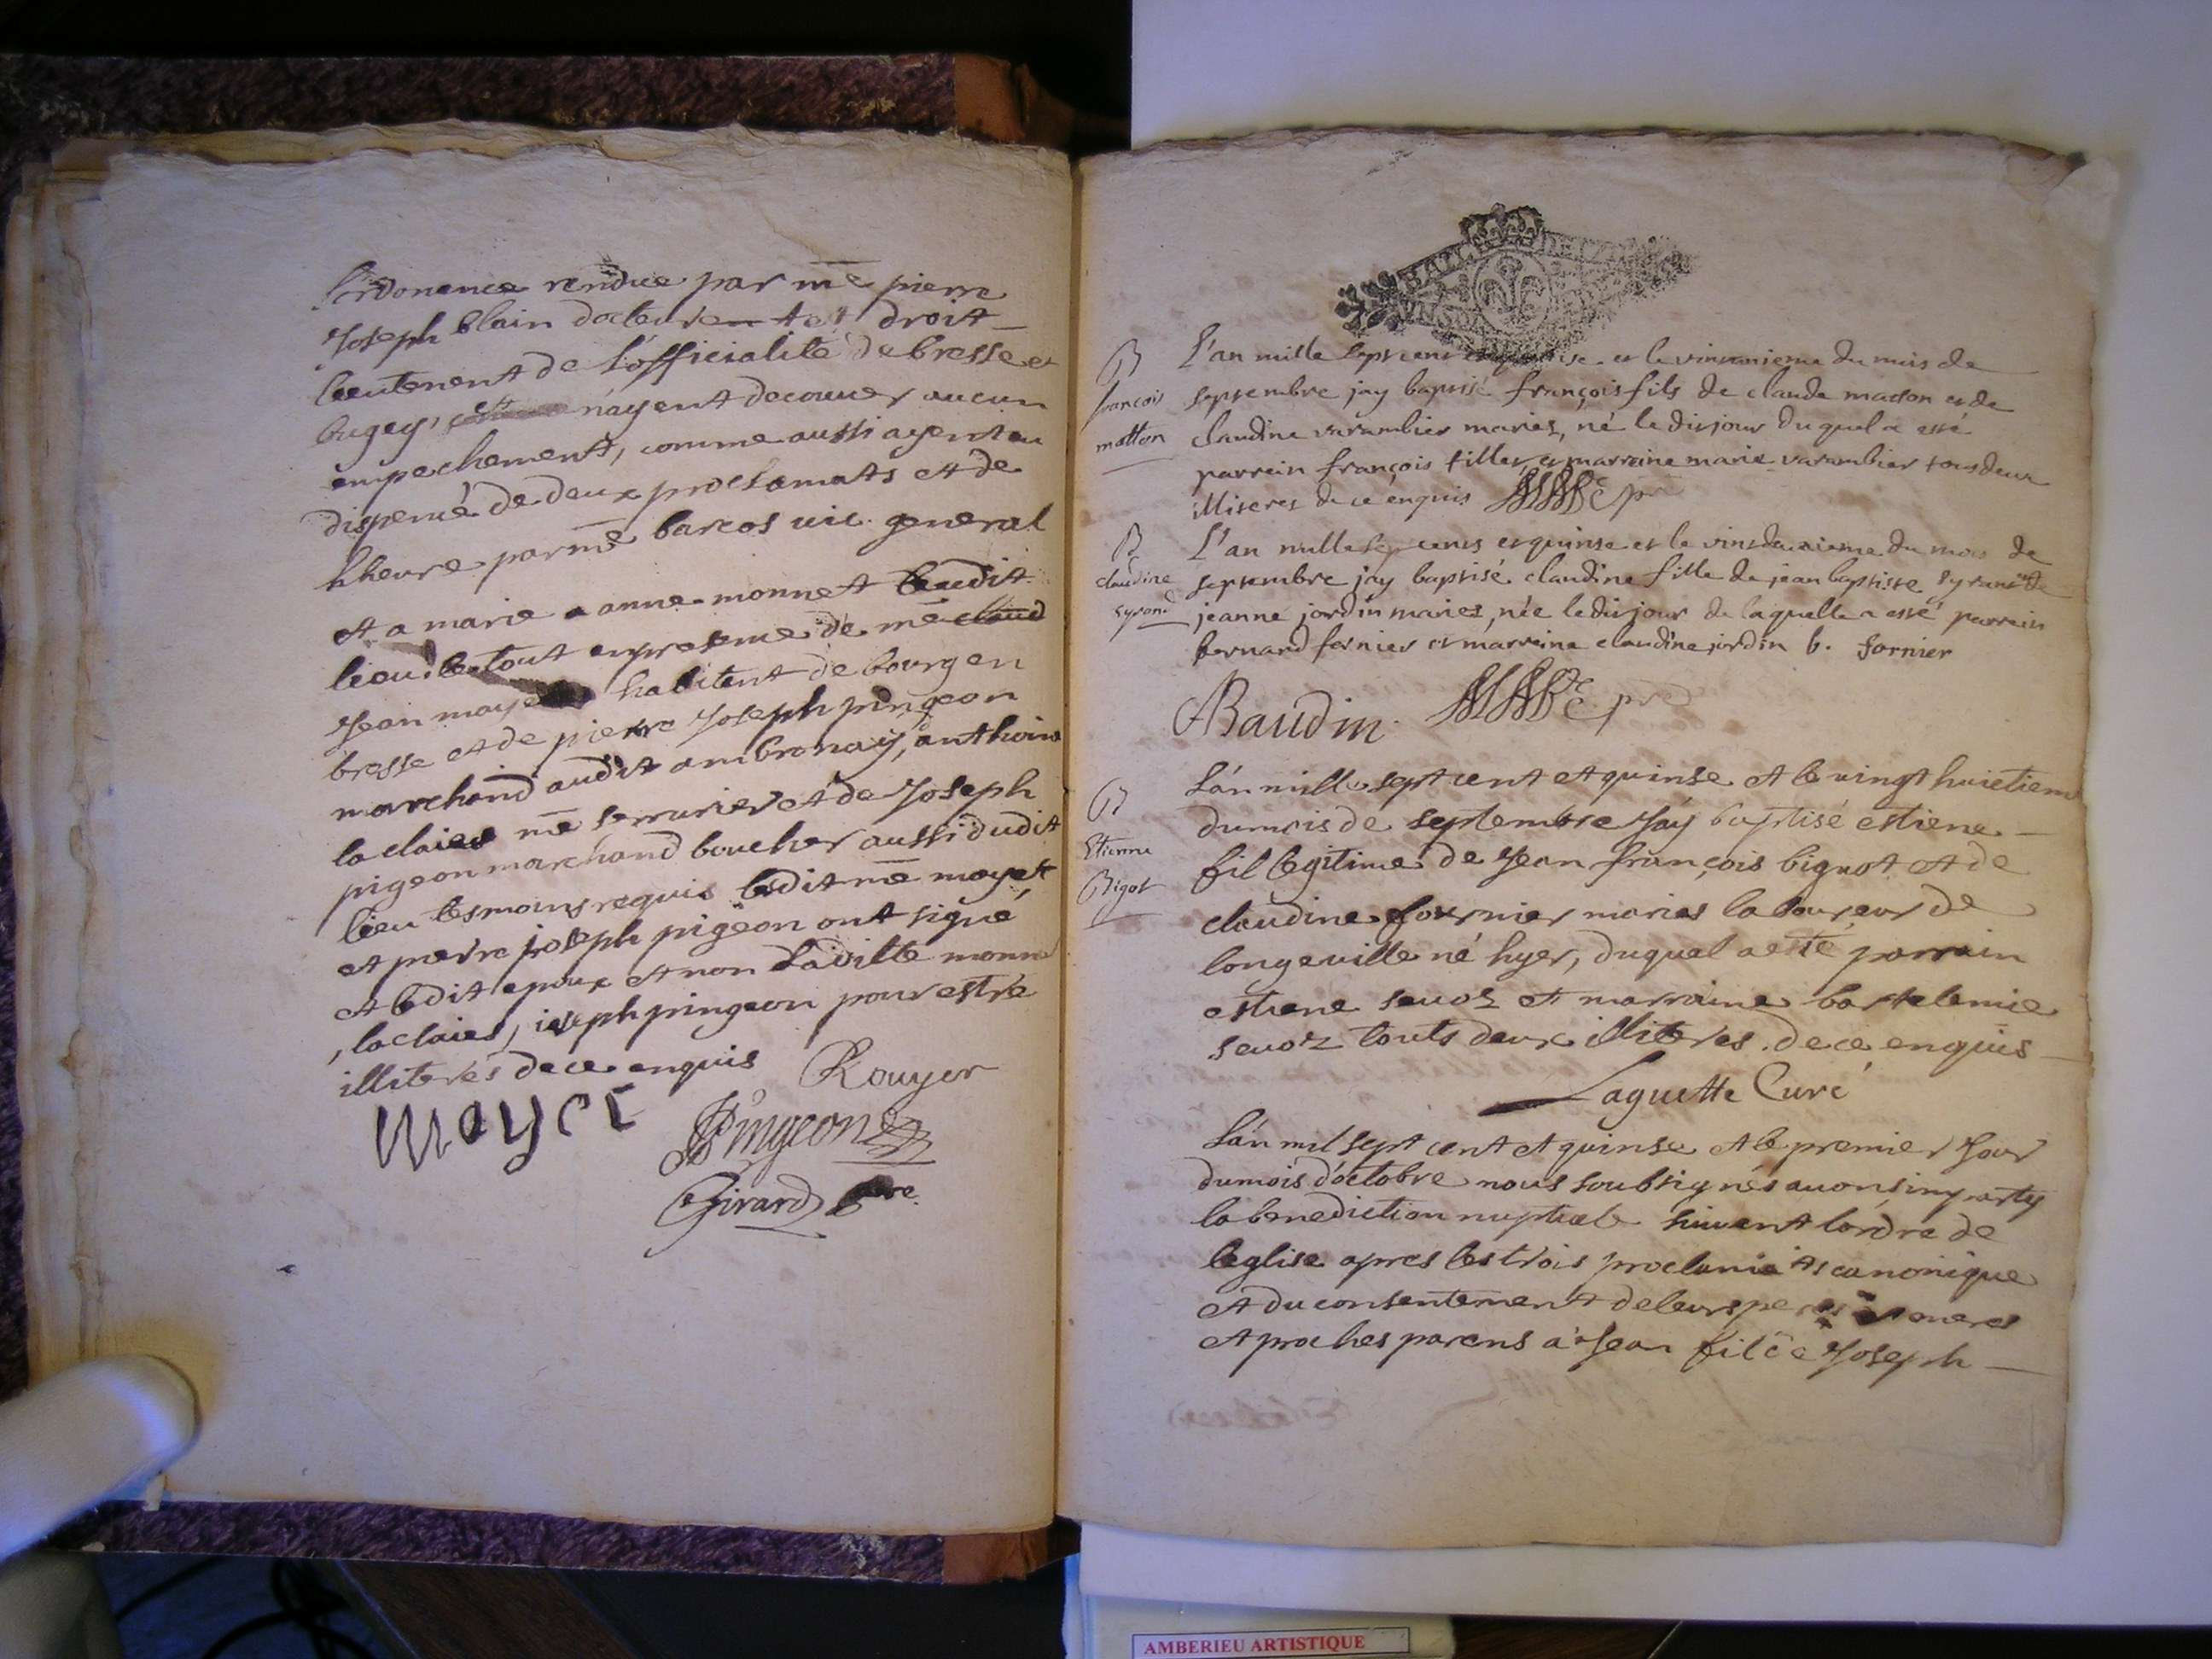 l'ordonence rendue par me pierre
Joseph blain docteur en droit
lieutenent de l'officialité de bresse et
bugey, n'ayent decouuer aucun
empechement, comme aussi ayent eu
dispensé de deux proclamats et de
lheure par me barcos vic. general
et a marie anne monnet dudit
lieu. le tout en presence de me
Jean mayet habitent de bourg en
bresse et de pierre Joseph pingeon
marchand audit ambronay, anthoine
laclaies me serrurier et de Joseph
pigeon marchand boucher aussi dudit
lieu tesmoins requis ledit me mayet
et pierre joseph pigeon ont signé
et ledit epoux et non laditte monne
, laclaies, joseph pingeon pour estre
illiterés de ce enquis Rouyer
Mayet
Pingeon
Girard
AMBERIEU ARTISTIQUE
B
françois
matton
L'an mille sept cens et quinse et le vintunieme du mois de
septembre jay baptisé françois fils de claude maton et de
claudine varambier mariez, né le dit jour duquel a esté
parrein françois tiller et marreine marie varambier tous deux
illiteres de ce enquis
B
claudine
syrand
L'an mille sept cens et quinse et le vintdeuxieme du mois de
septembre jay baptisé claudine fille de jean baptiste syrand et de
jeanne jordin mariez, née le dit jour de laquelle a esté parrein
bernard fornier et marreine claudine jordin b. fornier
Baudin
B
Etienne
Bigot
L'an mille sept cent et quinse et le vingt huictiem
du mois de septembre Jay baptisé estiene
fil legitime de Jean françois bignot et de
claudine fournier maries laboureur de
longeville né hyer, duquel a esté parrain
estiene sevoz et marraine bartelemie
sevoz touts deux illiteres de ce enquis
Laguette Curé
L'an mil sept cent et quinse et le premier Jour
du mois d'octobre nous soubsignés avons imparty
la benediction nuptiale suivent lordre de
leglise apres les trois proclamats canonique
et du consentement de leurs peres et meres
et proches parens à Jean fil de Joseph